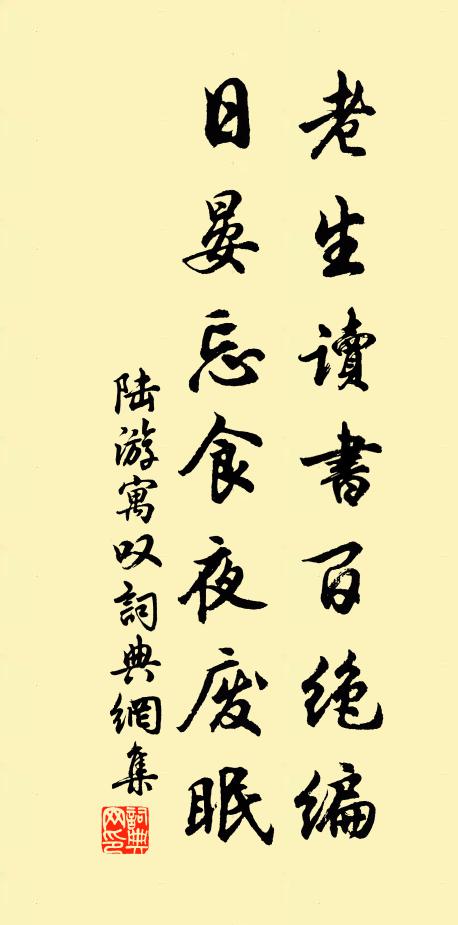 老生读書百绝编
日晏忘食夜废眠
陆游寓叹詞典網集
詞典网印